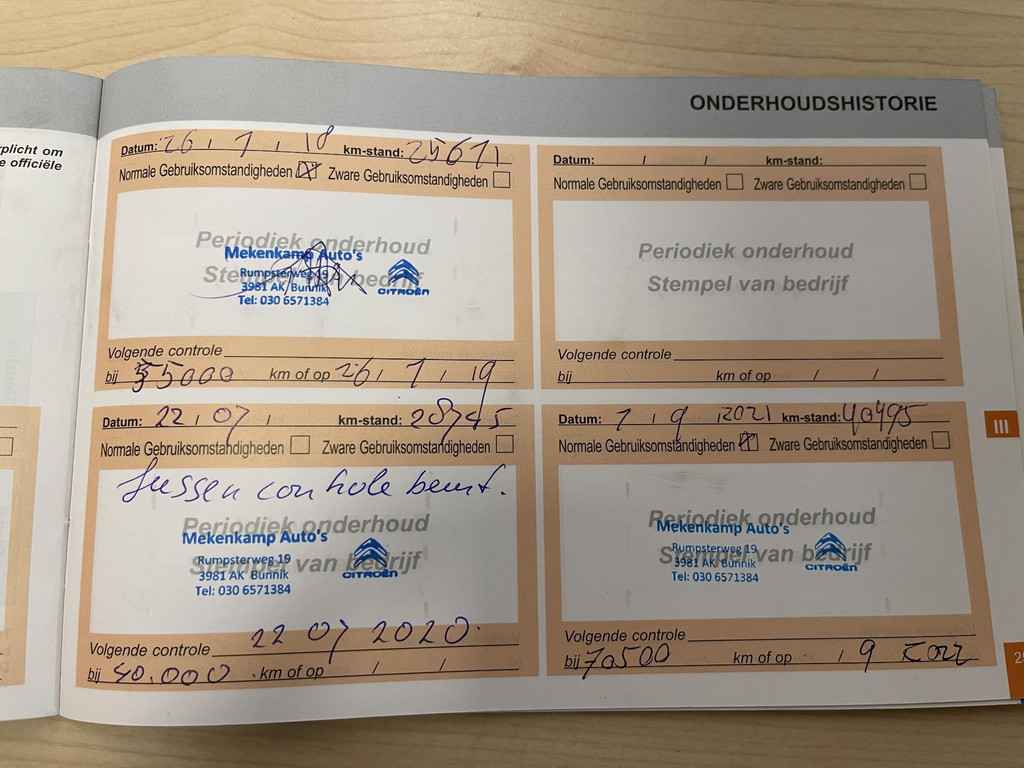 ONDERHOUDSHISTORIE
plicht om
e officiële
Datum: 26 / 1 / 18 km-stand: 25671
Normale Gebruiksomstandigheden Zware Gebruiksomstandigheden
Periodiek onderhoud
Stempel van bedrijf
Mekenkamp Auto's
Rumpsterweg 19
3981 AK Bunnik
Tel: 030 6571384
CITROËN
Volgende controle
bij 55000 km of op 26 / 1 / 19
Datum: / / km-stand:
Normale Gebruiksomstandigheden Zware Gebruiksomstandigheden
Periodiek onderhoud
Stempel van bedrijf
Volgende controle
bij km of op / /
Datum: 22 / 07 / km-stand: 28745
Normale Gebruiksomstandigheden Zware Gebruiksomstandigheden
Tussen controle beurt.
Periodiek onderhoud
Stempel van bedrijf
Mekenkamp Auto's
Rumpsterweg 19
3981 AK Bunnik
Tel: 030 6571384
CITROËN
Volgende controle 22 07 2020.
bij 40.000 km of op / /
Datum: 1 / 9 / 2021 km-stand: 40495
Normale Gebruiksomstandigheden Zware Gebruiksomstandigheden
Periodiek onderhoud
Stempel van bedrijf
Mekenkamp Auto's
Rumpsterweg 19
3981 AK Bunnik
Tel: 030 6571384
CITROËN
Volgende controle
bij 70500 km of op / 9 2022
III